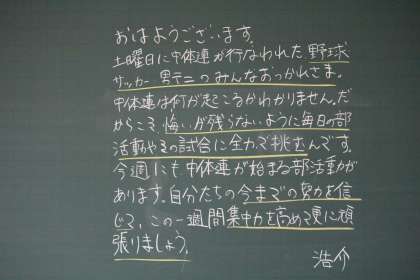 おはようございます。
土曜日に中体連が行なわれた野球
サッカー 男テニのみんなおつかれさま。
中体連は何が起こるかわかりません。だ
からこそ、悔いが残らないように毎日の部
活動やその試合に全力で挑むんです。
今週にも中体連が始まる部活動が
あります。自分たちの今までの努力を信
じて、この一週間集中力を高めて更に頑
張りましょう。
浩介